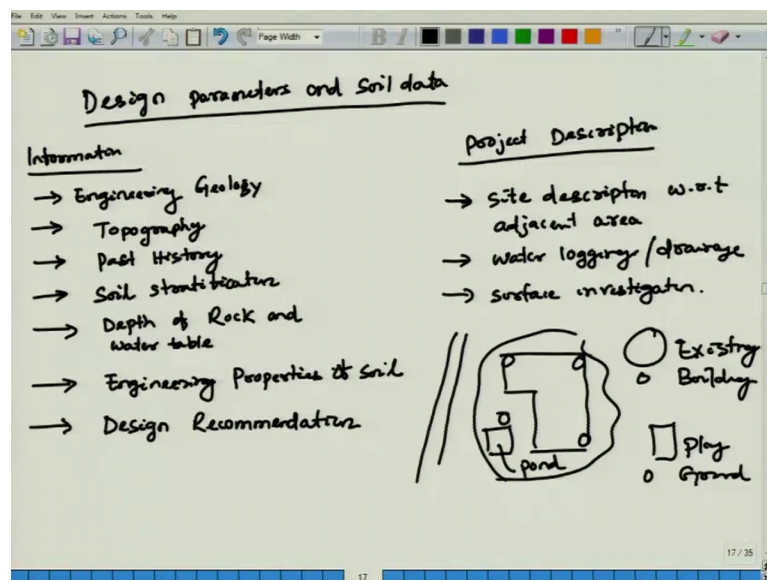 File Edit View Insert Actions Tools Help
Page Width
B I
Design parameters and Soil data
Information
→ Engineering Geology
→ Topography
→ Past History
→ Soil stratification
→ Depth of Rock and
water table
→ Engineering Properties of soil
→ Design Recommendation
Project Description
→ site description w.r.t
adjacent area
→ water logging / drainage
→ surface investigation.
Existing
Building
Play
Ground
pond
17 / 35
17